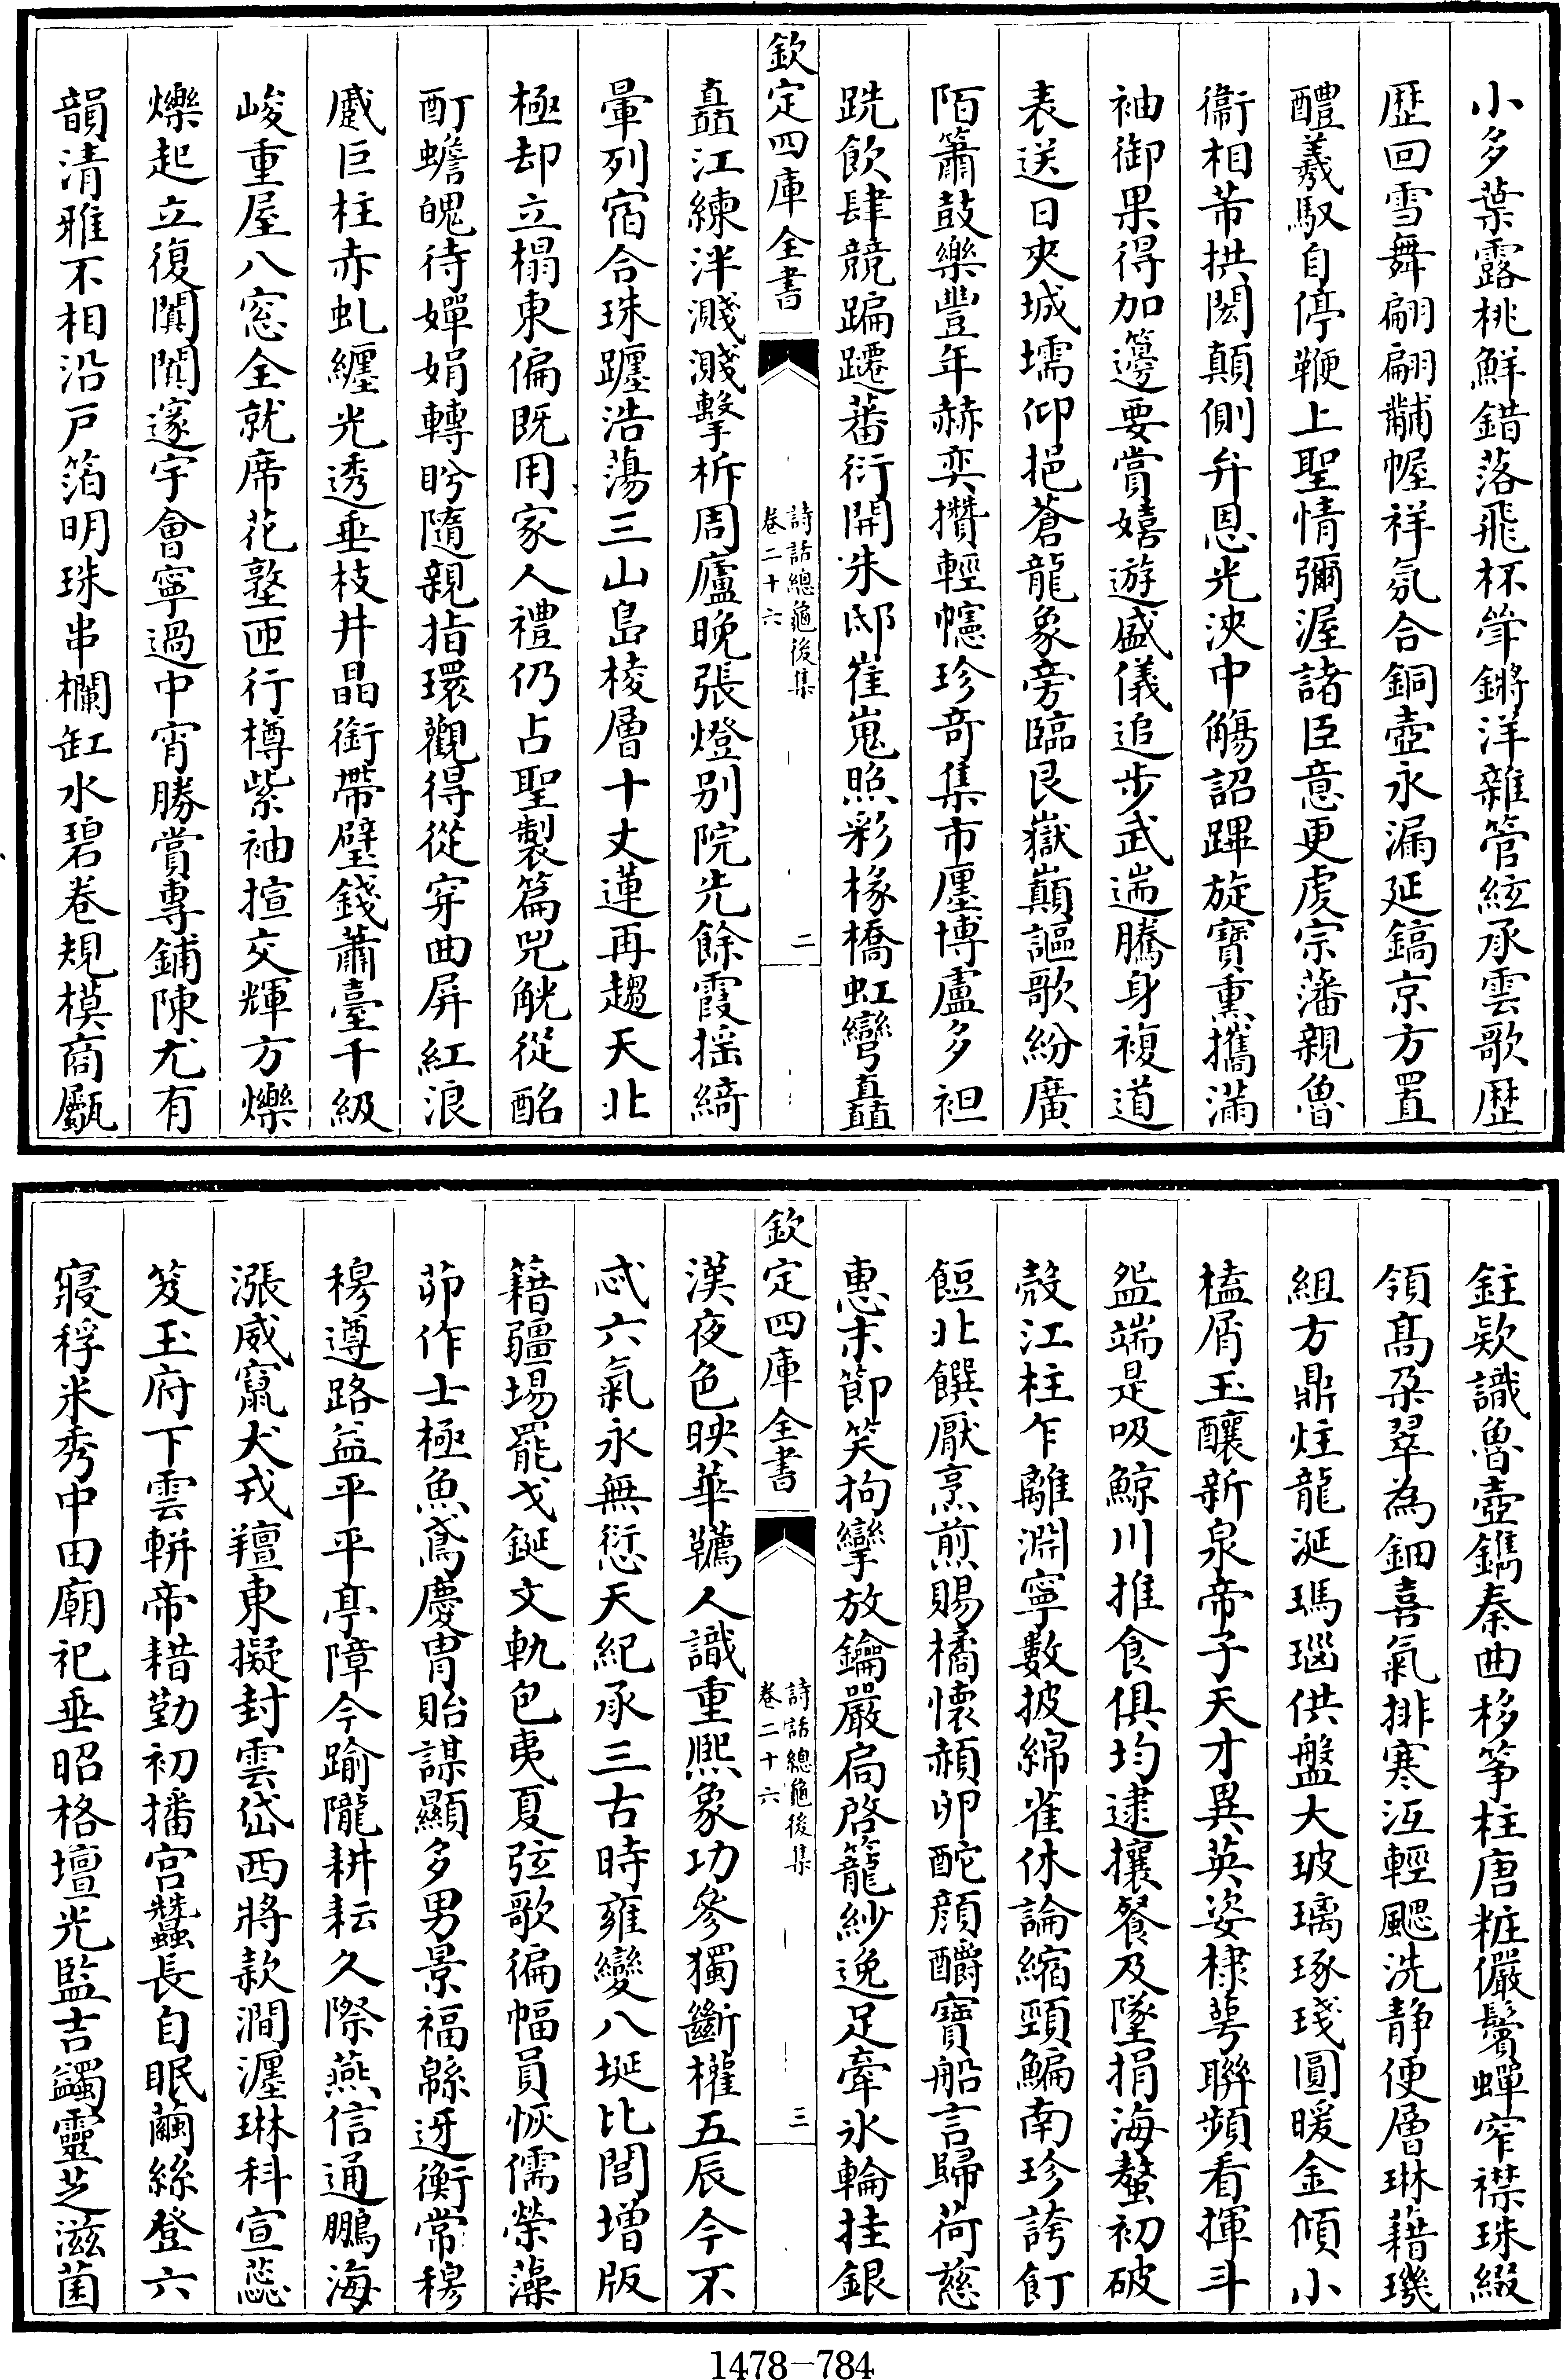 小多葉露桃鮮錯落飛杯斝鏘洋雜管絃承雲歌歴
歴回雪舞翩翩黼幄祥氛合銅壺永漏延鎬京方置
醴羲馭自停鞭上聖情彌渥諸臣意更虔宗藩親魯
衞相芾拱閎顛側弁恩光浹中觴詔蹕旋寶熏攜滿
袖御果得加籩要賞嬉遊盛儀追步武遄騰身複道
表送日夾城堧仰挹蒼龍象旁臨艮嶽巔謳歌紛廣
陌簫鼓樂豐年赫奕攢輕幰珍奇集市廛博盧多袒
跣飲肆競蹁躚蕃衍開朱邸崔嵬照彩椽橋虹彎矗
欽定四庫全書
詩話總龜後集
卷二十六
二
矗江練泮濺濺擊柝周廬晚張燈别院先餘霞摇綺
暈列宿合珠躔浩蕩三山島棱層十丈蓮再趨天北
極却立榻東偏既用家人禮仍占聖製篇兕觥從酩
酊蟾魄待嬋娟轉盻隨親指環觀得從穿曲屏紅浪
蹙巨柱赤虬纏光透垂枝井晶銜帶壁錢蕭臺千級
峻重屋八窓全就席花墪匝行樽紫袖揎交輝方爍
爍起立復闐闐邃宇會寧過中宵勝賞專鋪陳尤有
韻清雅不相沿戸箔明珠串欄缸水碧卷規模商甗
鉒欵識魯壺鐫秦曲移筝柱唐粧儼鬢蟬窄襟珠綴
領髙朶翠為鈿喜氣排寒沍輕颸洗静便層琳藉璣
組方鼎炷龍涎瑪瑙供盤大玻璃琢琖圓暖金傾小
榼屑玉釀新泉帝子天才異英姿棣萼聯頻看揮斗
盌端是吸鯨川推食俱均逮攘餐及墜捐海螯初破
殼江柱乍離淵寧數披綿雀休論縮頸鯿南珍誇飣
餖北饌厭烹煎賜橘懷頳卵酡顔釂寶船言歸荷慈
惠末節笑拘攣放鑰嚴扃啓籠紗逸足牽氷輪挂銀
欽定四庫全書
詩話總龜後集
卷二十六
三
漢夜色映華韉人識重熙象功參獨斷權五辰今不
忒六氣永無愆天紀承三古時雍變八埏比閭增版
籍疆埸罷戈鋋文軌包夷夏弦歌徧幅員恢儒榮藻
茆作士極魚鳶慶胄貽謀顯多男景福緜迓衡常穆
穆遵路益平平亭障今踰隴耕耘久際燕信通鵬海
漲威竄犬戎羶東擬封雲岱西將款澗瀍琳科宣蕊
笈玉府下雲軿帝耤勤初播宫蠶長自眠繭絲登六
寢稃米秀中田廟祀垂昭格壇光監吉蠲靈芝滋菌
1478-784